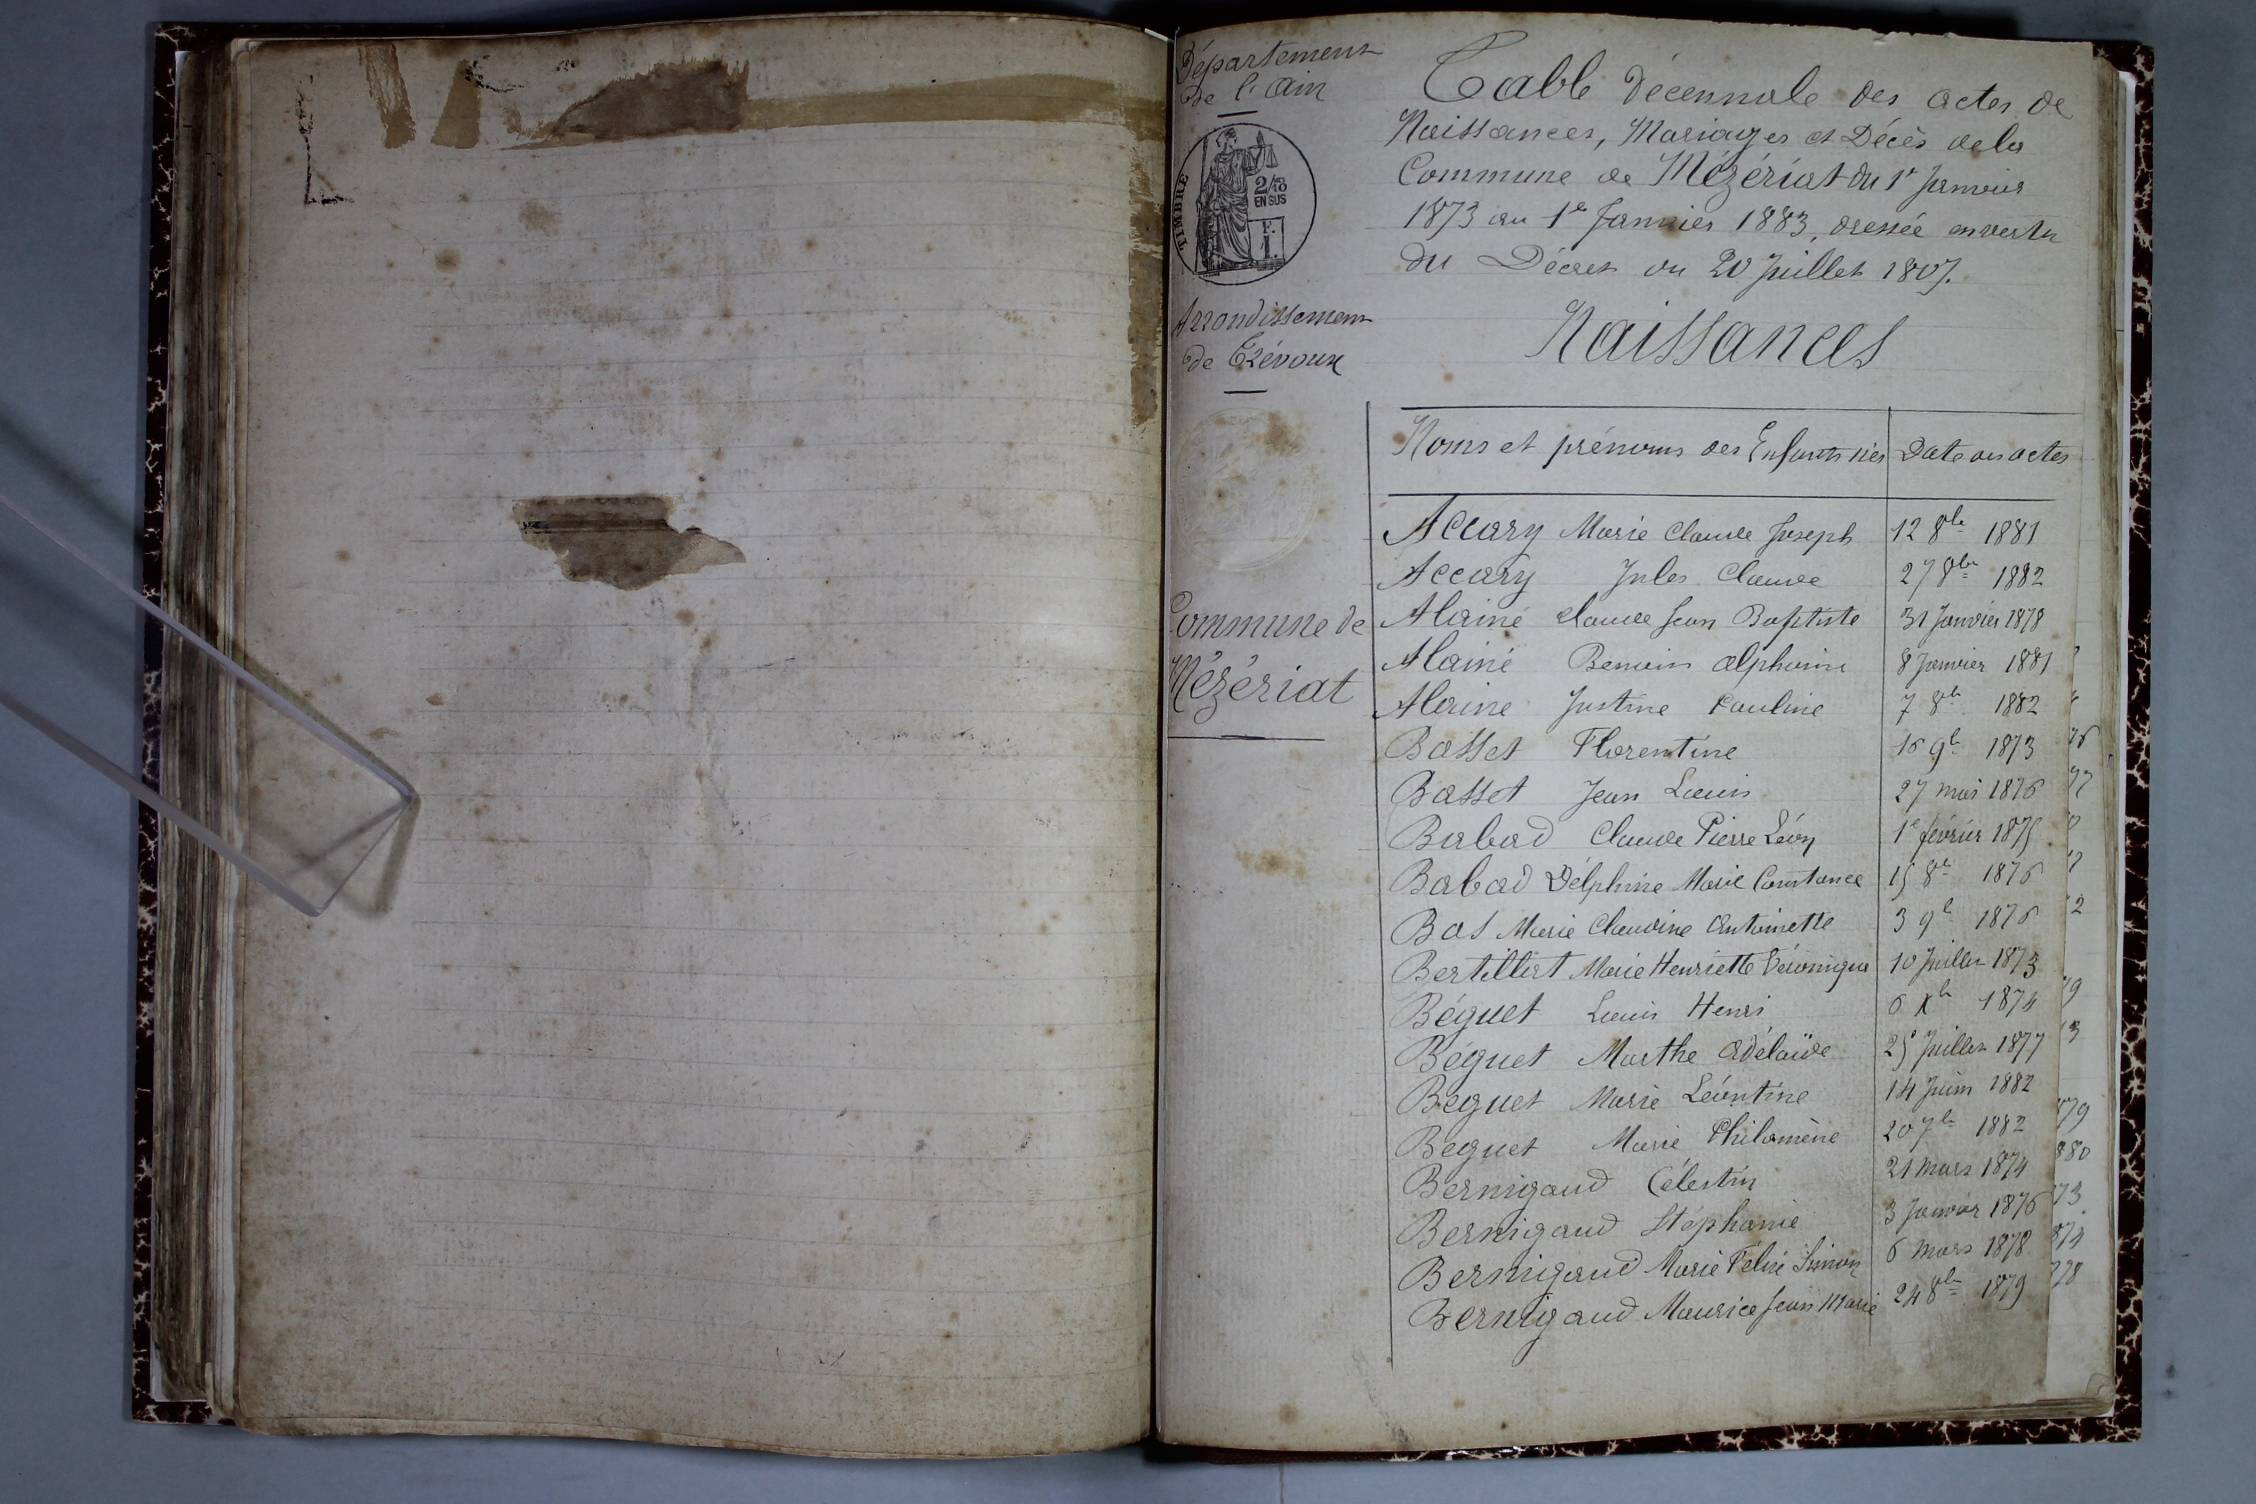 Département
de l'Ain
TIMBRE
2/10
EN SUS
F.
1.
Arrondissement
de Trévoux
Commune de
Mézériat
Table décennale des actes de
Naissances, Mariages et Décès de la
Commune de Mézériat du 1er Janvier
1873 au 1er Janvier 1883, dressée en vertu
du Décret du 20 Juillet 1807.
Naissances
Noms et prénoms des Enfants nés Date des actes
Accary Marie Claude Joseph 12 8bre 1881
Accary Jules Claude 27 8bre 1882
Alainé Claude Jean Baptiste 31 Janvier 1878
Alainé Benoin Alphonse 8 Janvier 1881
Alaine Justine Pauline 7 8bre 1882
Basset Florentine 16 9bre 1873
Basset Jean Louis 27 mai 1876
Babad Claude Pierre Léon 1er février 1875
Babad Délphine Marie Constance 15 8bre 1876
Bas Marie Claudine Antoinette 3 9bre 1876
Bertillist Marie Henriette Véronique 10 Juillet 1873
Béguet Louis Henri 6 Xbre 1874
Béguet Marthe Adélaïde 25 Juillet 1877
Béguet Marie Léontine 14 Juin 1882
Beguet Marie Philomène 20 7bre 1882
Bernigaud Célestin 21 mars 1874
Bernigaud Stéphanie 3 Janvier 1876
Bernigaud Marie Félix Simon 6 mars 1878
Bernigaud Maurice Jean Marie 24 8bre 1879